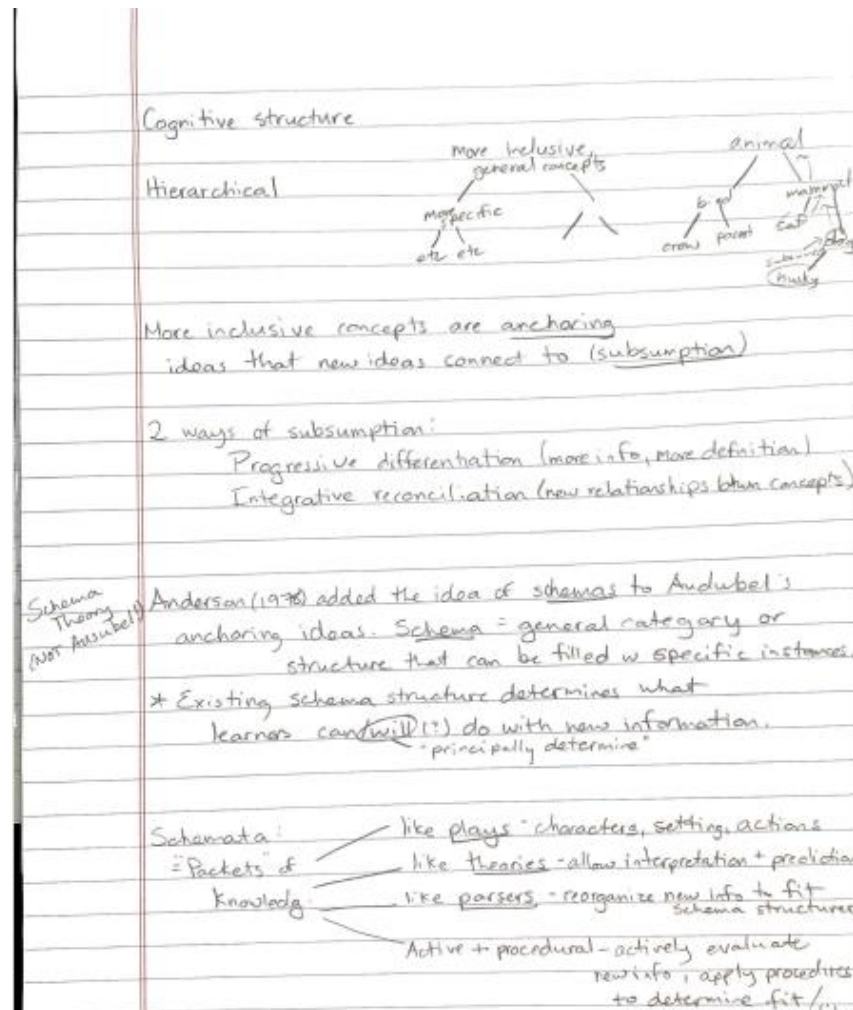 Cognitive structure
more inclusive,
general concepts
animal
Hierarchical
more specific
bird
mammal
etc etc
crow parrot
cat
dog
Husky
More inclusive concepts are anchoring
ideas that new ideas connect to (subsumption)
2 ways of subsumption:
Progressive differentiation (more info, more definition)
Integrative reconciliation (new relationships btwn concepts)
Schema
Theory
(NOT Ausubel!)
Anderson (1978) added the idea of schemas to Audubel's
anchoring ideas. Schema = general category or
structure that can be filled w specific instances.
* Existing schema structure determines what
learners can/will (?) do with new information.
"principally determine"
Schemata:
= "Packets" of
Knowledg
like plays - characters, setting, actions
like theories - allow interpretation + prediction
like parsers - reorganize new info to fit
schema structures
Active + procedural - actively evaluate
new info, apply procedures
to determine fit/...